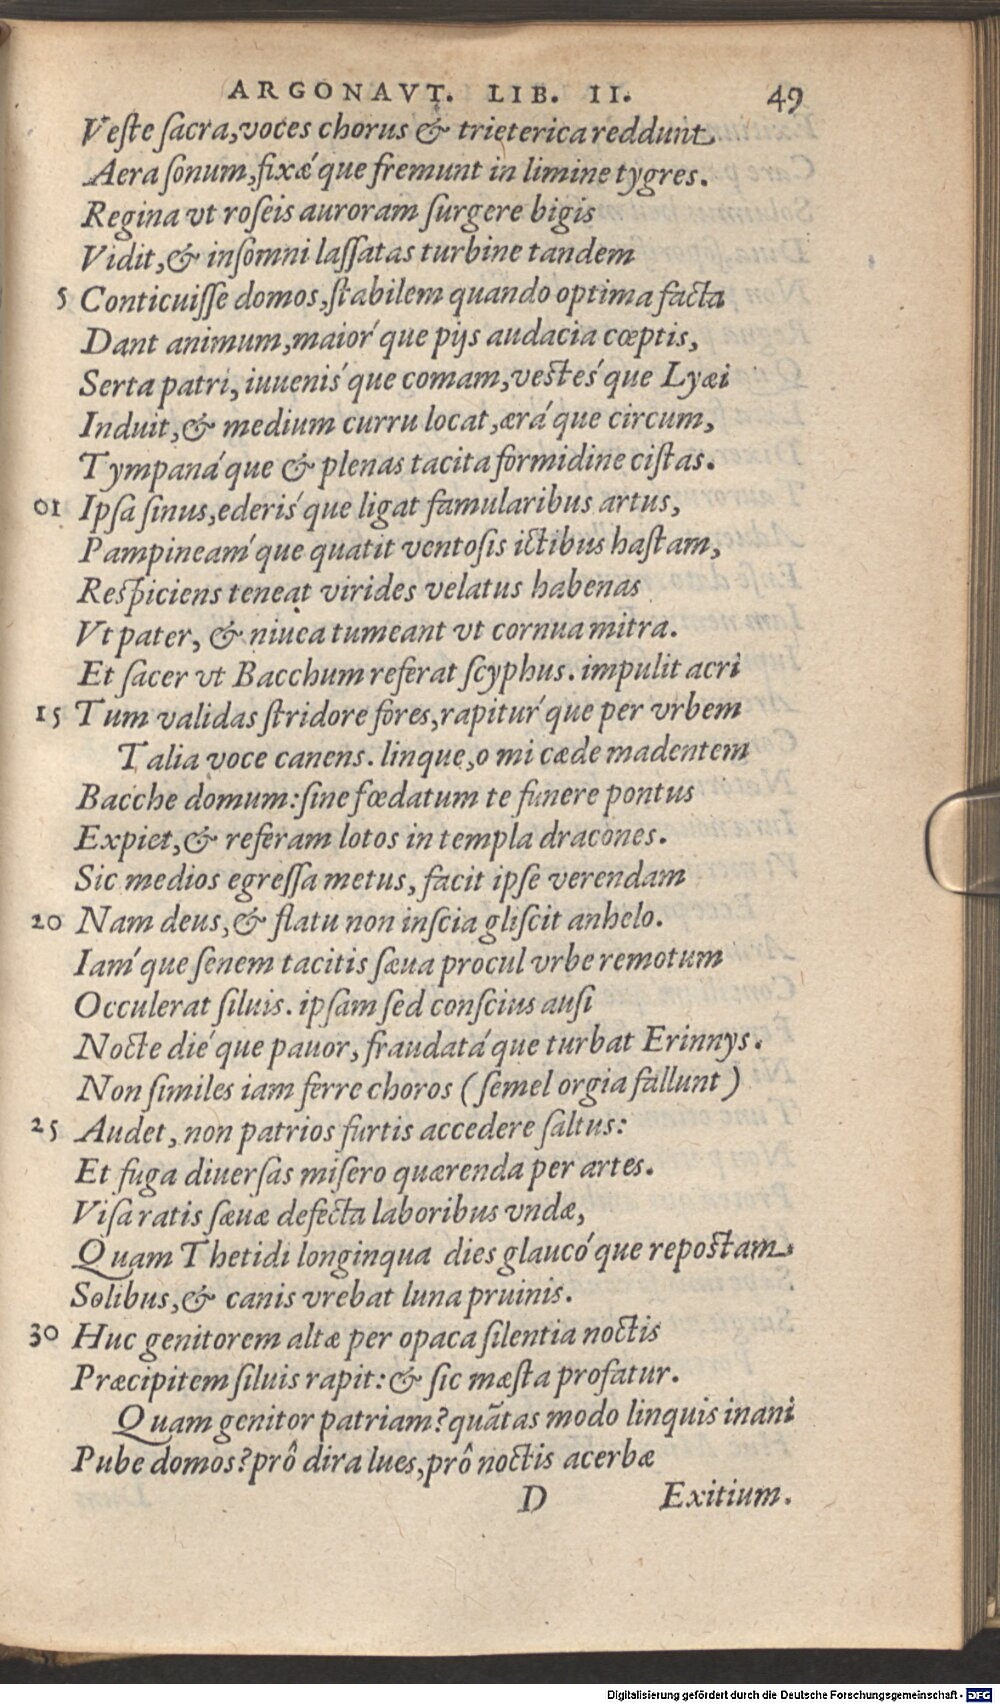 ARGONAVT. LIB. II. 49
Veſte ſacra, voces chorus & trieterica reddunt
Aera ſonum, fixǽque fremunt in limine tygres.
Regina vt roſeis auroram ſurgere bigis
Vidit, & inſomni laſſatas turbine tandem
5 Conticuiſſe domos, ſtabilem quando optima facta
Dant animum, maiór que pijs audacia cœptis,
Serta patri, iuuenis´que comam, vestes´que Lyæi
Induit, & medium curru locat, ærá que circum,
Tympaná que & plenas tacita formidine ciſtas.
01 Ipſa ſinus, ederis´que ligat famularibus artus,
Pampineam´que quatit ventoſis ictibus haſtam,
Reſpiciens teneat virides velatus habenas
Vt pater, & niuea tumeant vt cornua mitra.
Et ſacer vt Bacchum referat ſcyphus. impulit acri
15 Tum validas ſtridore fores, rapitur´que per vrbem
Talia voce canens. linque, o mi cæde madentem
Bacche domum: ſine fœdatum te funere pontus
Expiet, & referam lotos in templa dracones.
Sic medios egreſſa metus, facit ipſe verendam
20 Nam deus, & flatu non inſcia gliſcit anhelo.
Iam´que ſenem tacitis ſæua procul vrbe remotum
Occulerat ſiluis. ipſam ſed conſcius auſi
Nocte dié que pauor, fraudatá que turbat Erinnys.
Non ſimiles iam ferre choros (ſemel orgia fallunt)
25 Audet, non patrios furtis accedere ſaltus:
Et fuga diuerſas miſero quærenda per artes.
Viſa ratis ſæuæ defecta laboribus vndæ,
Quam Thetidi longinqua dies glaucó que repostam
Solibus, & canis vrebat luna pruinis.
30 Huc genitorem altæ per opaca ſilentia noctis
Præcipitem ſiluis rapit: & ſic mæſta profatur.
Quam genitor patriam? quãtas modo linquis inani
Pube domos? prô dira lues, prô noctis acerbæ
D Exitium.
Digitalisierung gefördert durch die Deutsche Forschungsgemeinschaft - DFG